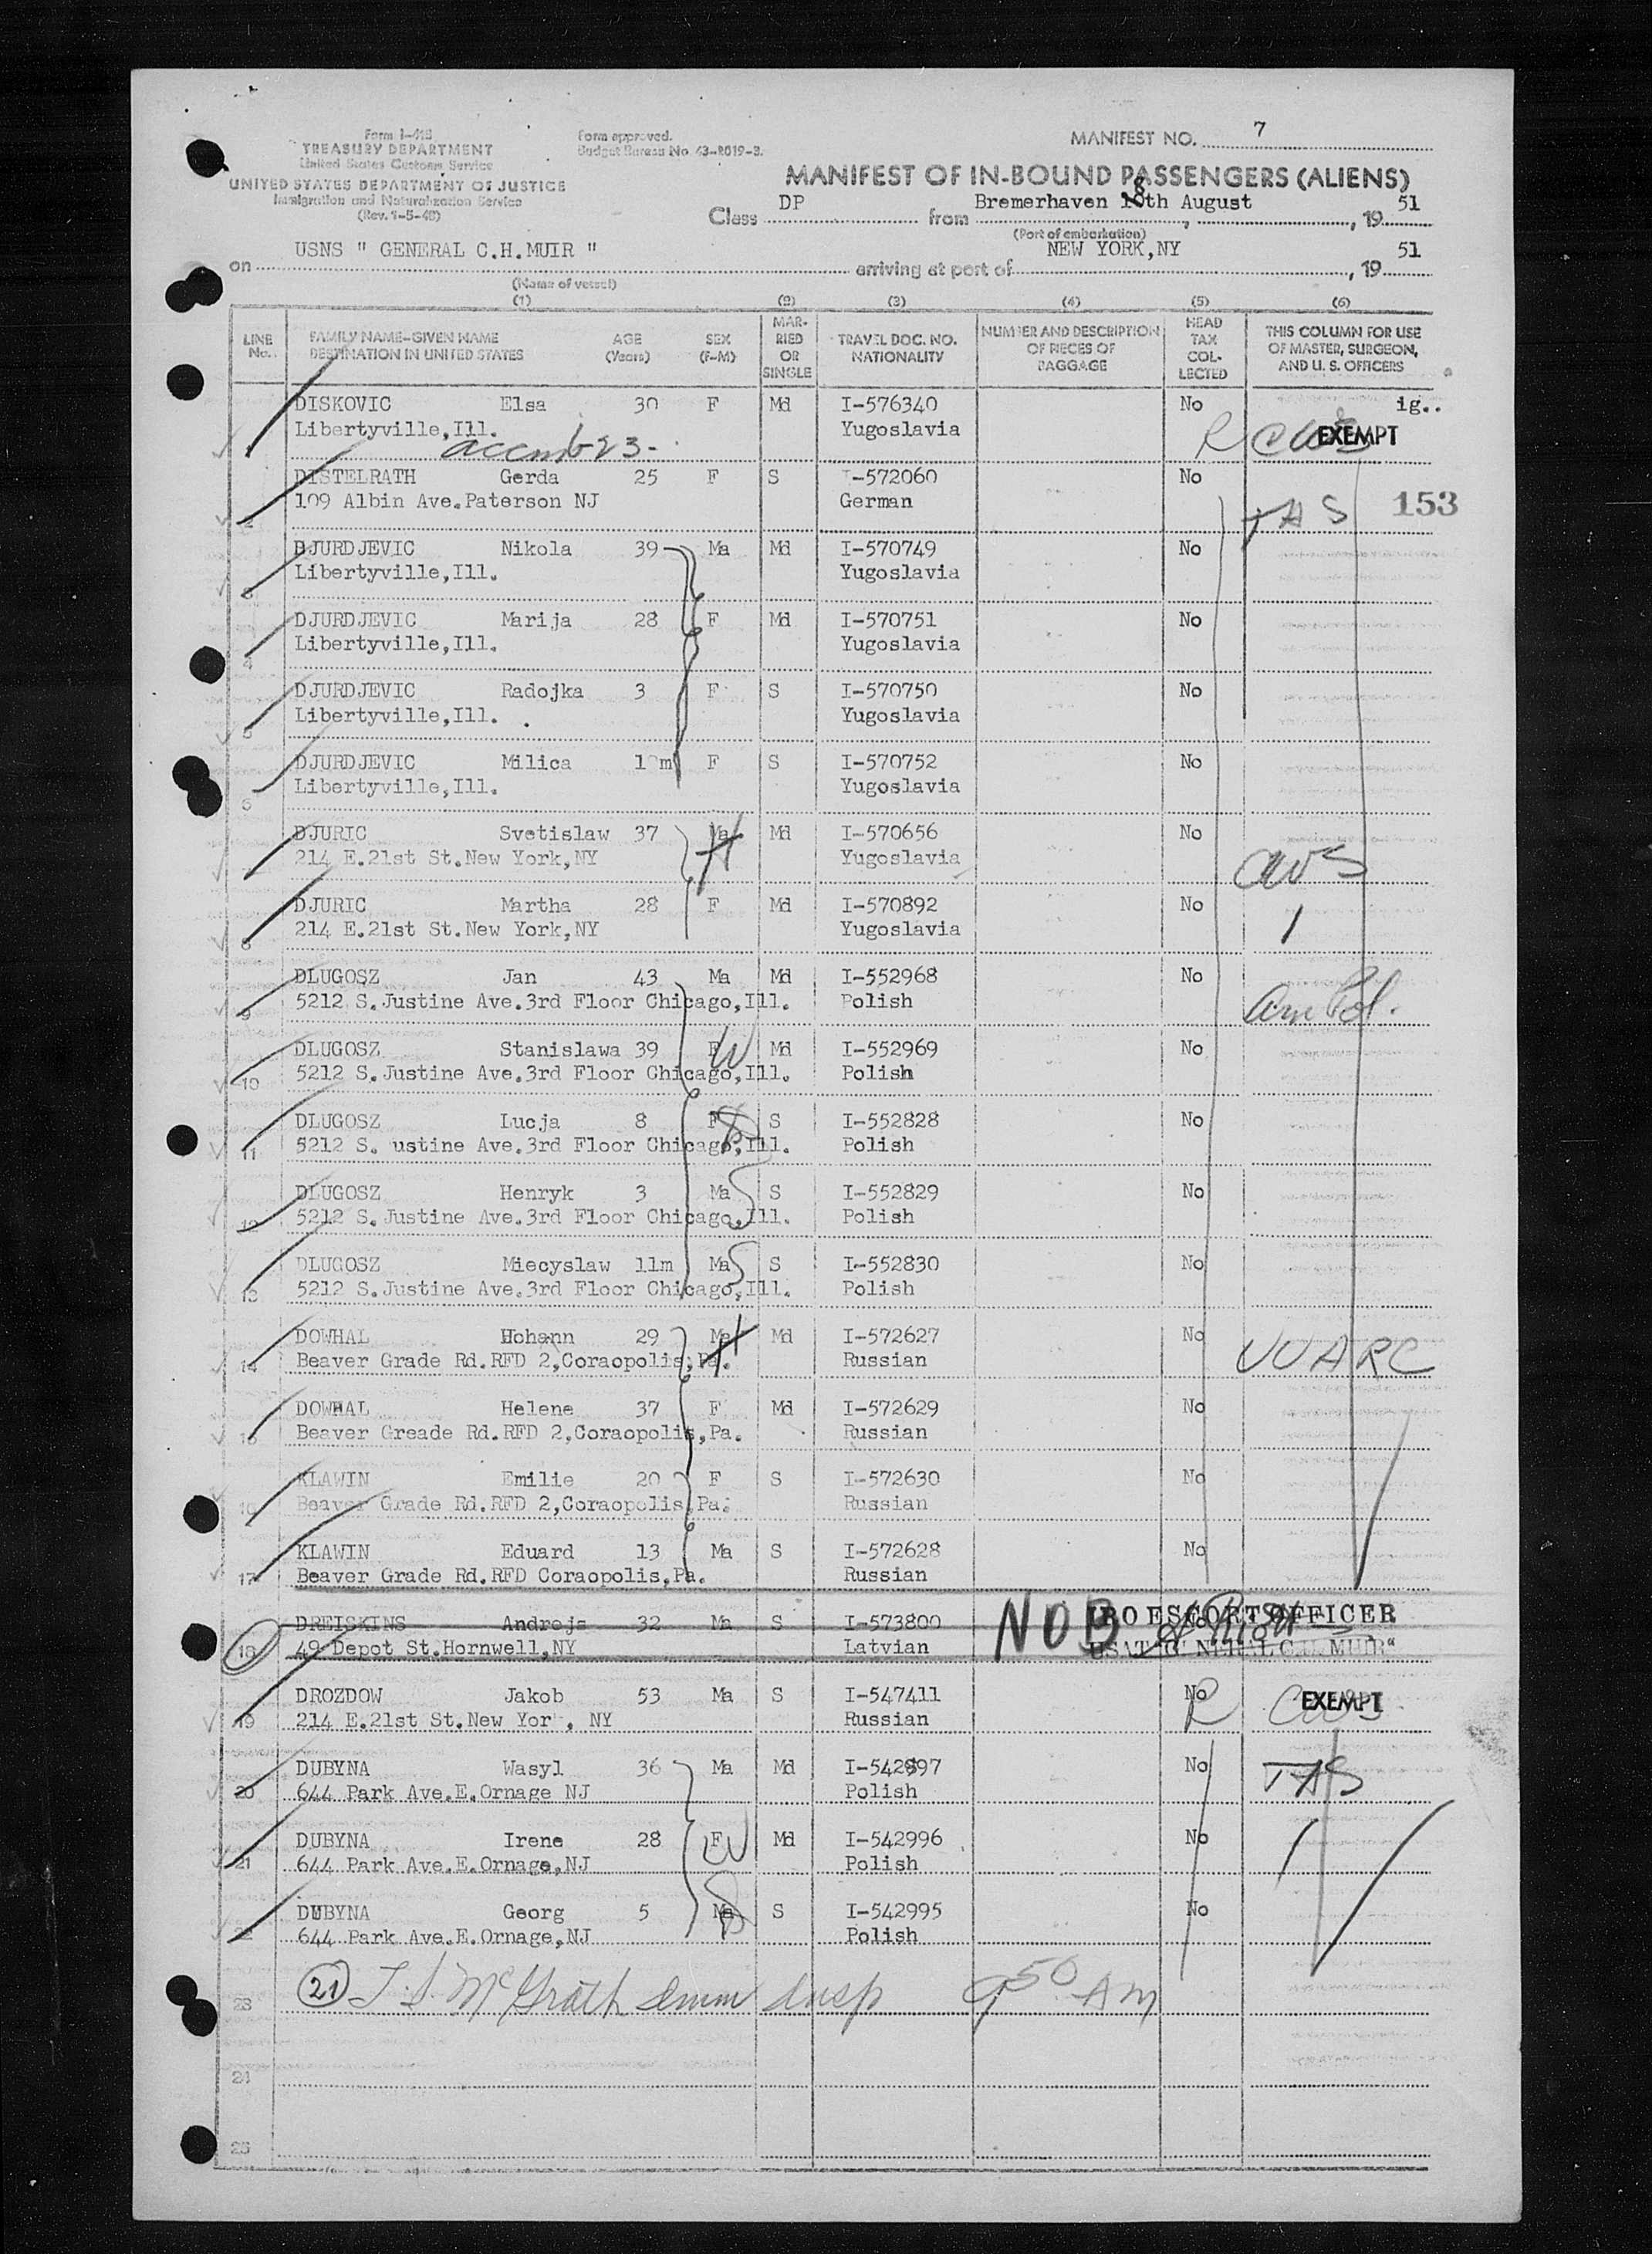 Form I-418
TREASURY DEPARTMENT
United States Customs Service
UNITED STATES DEPARTMENT OF JUSTICE
Immigration and Naturalization Service
(Rev. 1-5-48)
Form approved.
Budget Bureau No. 43-R019-3.
MANIFEST NO. 7
MANIFEST OF IN-BOUND PASSENGERS (ALIENS)
Class DP from Bremerhaven 18th August, 1951
(Port of embarkation)
on USNS " GENERAL C.H.MUIR " arriving at port of NEW YORK,NY, 1951
(Name of vessel)
(1) (2) (3) (4) (5) (6)
LINE No. FAMILY NAME—GIVEN NAME DESTINATION IN UNITED STATES AGE (Years) SEX (F-M) MARRIED OR SINGLE TRAVEL DOC. NO. NATIONALITY NUMBER AND DESCRIPTION OF PIECES OF BAGGAGE HEAD TAX COLLECTED THIS COLUMN FOR USE OF MASTER, SURGEON, AND U. S. OFFICERS
DISKOVIC Elsa 30 F Md I-576340 No ig..
Libertyville,Ill. Yugoslavia R EXEMPT
DISTELRATH Gerda 25 F S -572060 No
109 Albin Ave.Paterson NJ German TAS 153
DJURDJEVIC Nikola 39 Ma Md I-570749 No
Libertyville,Ill. Yugoslavia
DJURDJEVIC Marija 28 F Md I-570751 No
4 Libertyville,Ill. Yugoslavia
DJURDJEVIC Radojka 3 F S I-570750 No
5 Libertyville,Ill. Yugoslavia
DJURDJEVIC Milica m F S I-570752 No
6 Libertyville,Ill. Yugoslavia
DJURIC Svetislaw 37 Ma H Md I-570656 No
214 E.21st St.New York,NY Yugoslavia CWS
DJURIC Martha 28 F Md I-570892 No
8 214 E.21st St.New York,NY Yugoslavia
DLUGOSZ Jan 43 Ma Md I-552968 No
9 5212 S.Justine Ave.3rd Floor Chicago,Ill. Polish Am Pol.
DLUGOSZ Stanislawa 39 F W Md I-552969 No
10 5212 S.Justine Ave.3rd Floor Chicago,Ill. Polish
DLUGOSZ Lucja 8 F S I-552828 No
11 5212 S. ustine Ave.3rd Floor Chicago,Ill. Polish
DLUGOSZ Henryk 3 Ma S S I-552829 No
12 5212 S.Justine Ave.3rd Floor Chicago,Ill. Polish
DLUGOSZ Miecyslaw 11m Ma S S I-552830 No
13 5212 S.Justine Ave.3rd Floor Chicago,Ill. Polish
DOWHAL Hohann 29 Ma H Md I-572627 No
14 Beaver Grade Rd.RFD 2,Coraopolis,Pa. Russian UUARC
DOWHAL Helene 37 F Md I-572629 No
15 Beaver Greade Rd.RFD 2,Coraopolis,Pa. Russian
KLAWIN Emilie 20 F S I-572630 No
16 Beaver Grade Rd.RFD 2,Coraopolis,Pa. Russian
KLAWIN Eduard 13 Ma S I-572628 No
17 Beaver Grade Rd.RFD Coraopolis,Pa. Russian
DREISKINS Andrejs 32 Ma S I-573800 NOB IRO ESCORT OFFICER
18 49 Depot St.Hornwell,NY Latvian USAT "GENERAL C.H. MUIR"
DROZDOW Jakob 53 Ma S I-547411 No R CWS EXEMPT
19 214 E.21st St.New Yor , NY Russian
DUBYNA Wasyl 36 Ma Md I-542997 No TAS
20 644 Park Ave.E.Ornage NJ Polish
DUBYNA Irene 28 F W Md I-542996 No
21 644 Park Ave.E.Ornage,NJ Polish
DUBYNA Georg 5 Ma S I-542995 No
22 644 Park Ave.E.Ornage,NJ Polish
23 (21) T. S. McGrath Imm Insp 9 50 AM
24
25